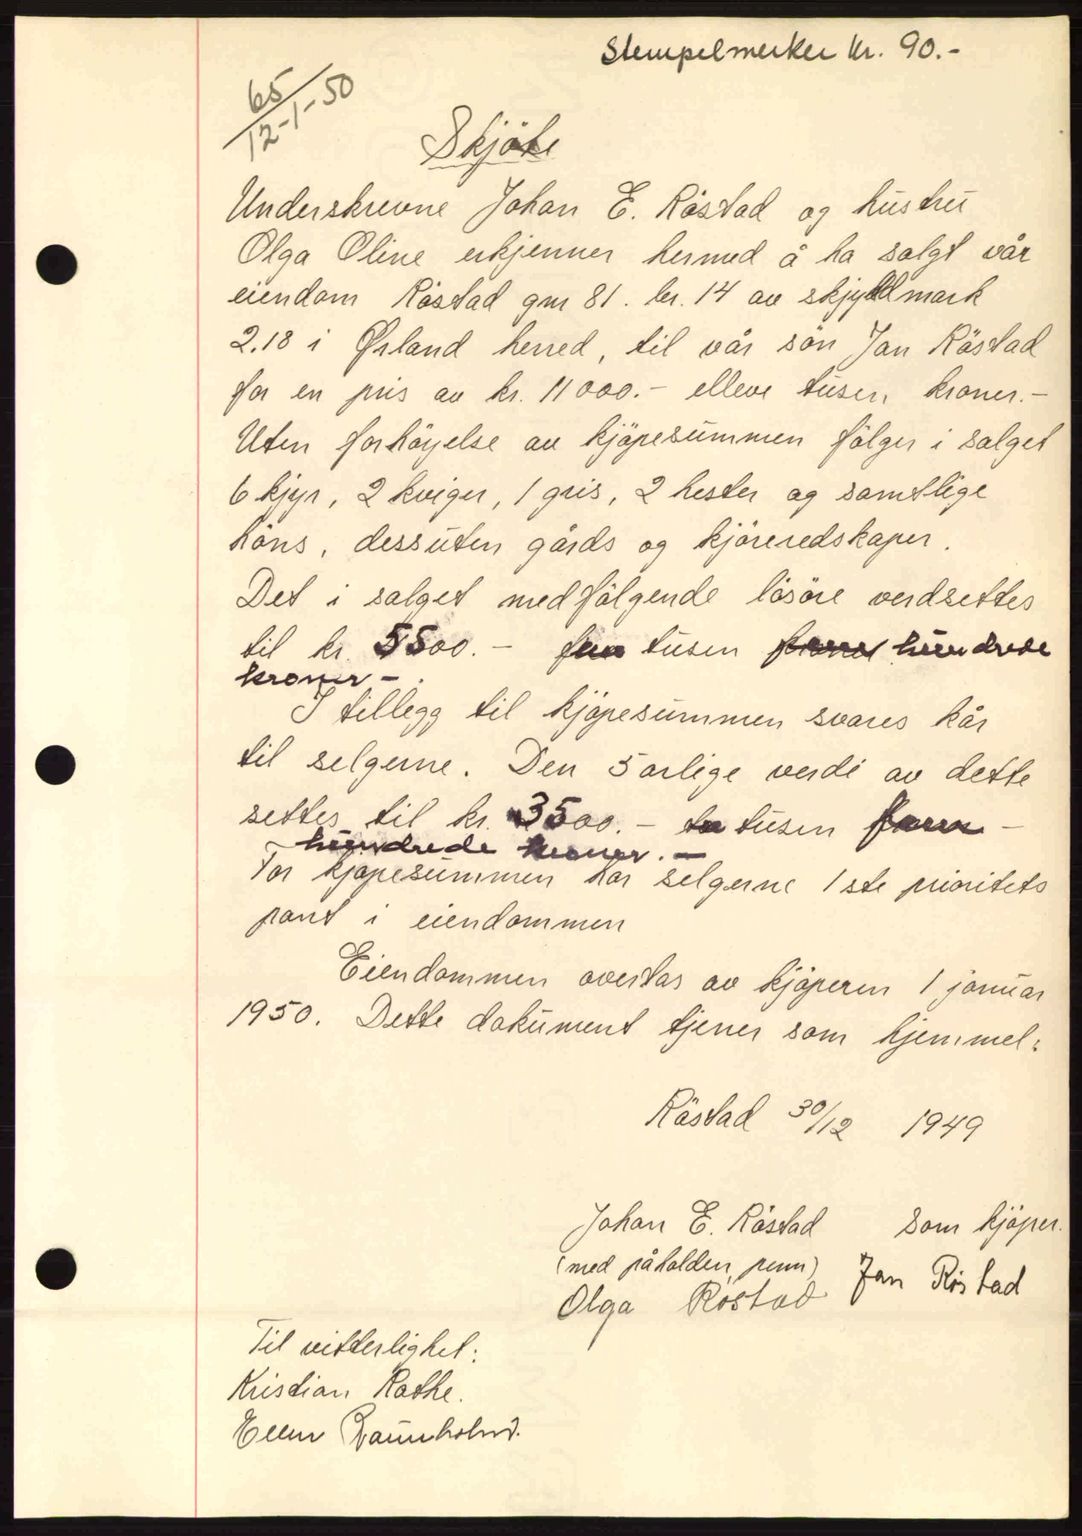 Stempelmerker kr. 90.-
65
12-1-50
Skjöte
Underskrevne Johan E. Röstad og hustru
Olga Oline erkjenner hermed å ha solgt vår
eiendom Röstad gnr 81. br. 14 av skyldmark
2.18 i Ørland herred, til vår sön Jan Röstad
for en pris av kr. 11000.- elleve tusen kroner.-
Uten forhöyelse av kjöpesummen fölger i salget
6 kjyr, 2 kviger, 1 gris, 2 hester og samtlige
höns, dessuten gårds og kjöreredskaper.
Det i salget medfölgende lösöre verdsettes
til kr. 5500.- fem tusen fem hundrede
kroner-.
I tillegg til kjöpesummen svares kår
til selgerne. Den 5 årlige verdi av dette
settes til kr. 3500.- tusen fem -
hundrede kroner.-
For kjöpesummen har selgerne 1ste prioritets
pant i eiendommen
Eiendommen overtas av kjöperen 1 januar
1950. Dette dokument tjener som hjemmel:
Röstad 30/12 1949
Johan E. Röstad som kjöper.
(med påholden penn) Jan Röstad
Olga Röstad
Til vitterlighet:
Kristian Rathe.
Ellen